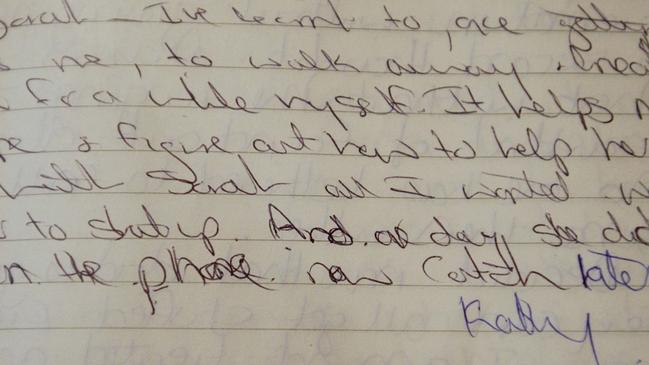 Sarah - I've learnt to, once getting
me, to walk away.
for a while myself. It helps
& figure out how to help he
with Sarah all I wanted w
to shut up. And one day, she did
n the phone. now Catch late
Kathy